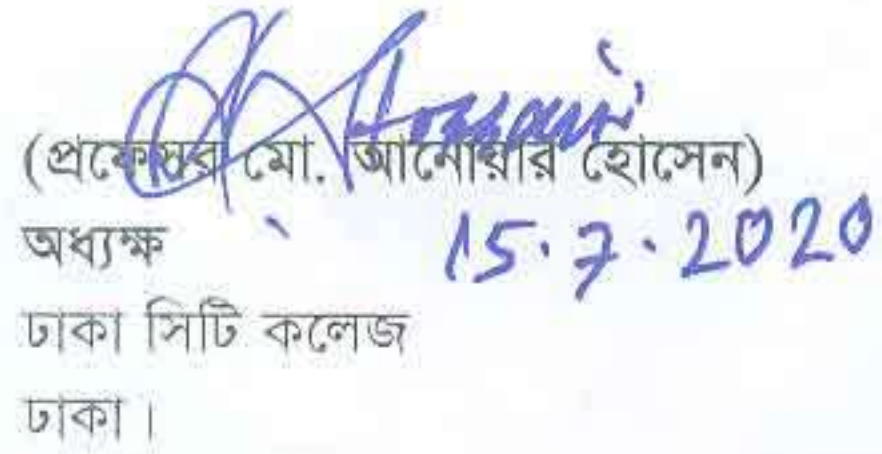 Hossain
(প্রফেসর মো. আনোয়ার হোসেন)
অধ্যক্ষ
15.7.2020
ঢাকা সিটি কলেজ
ঢাকা।